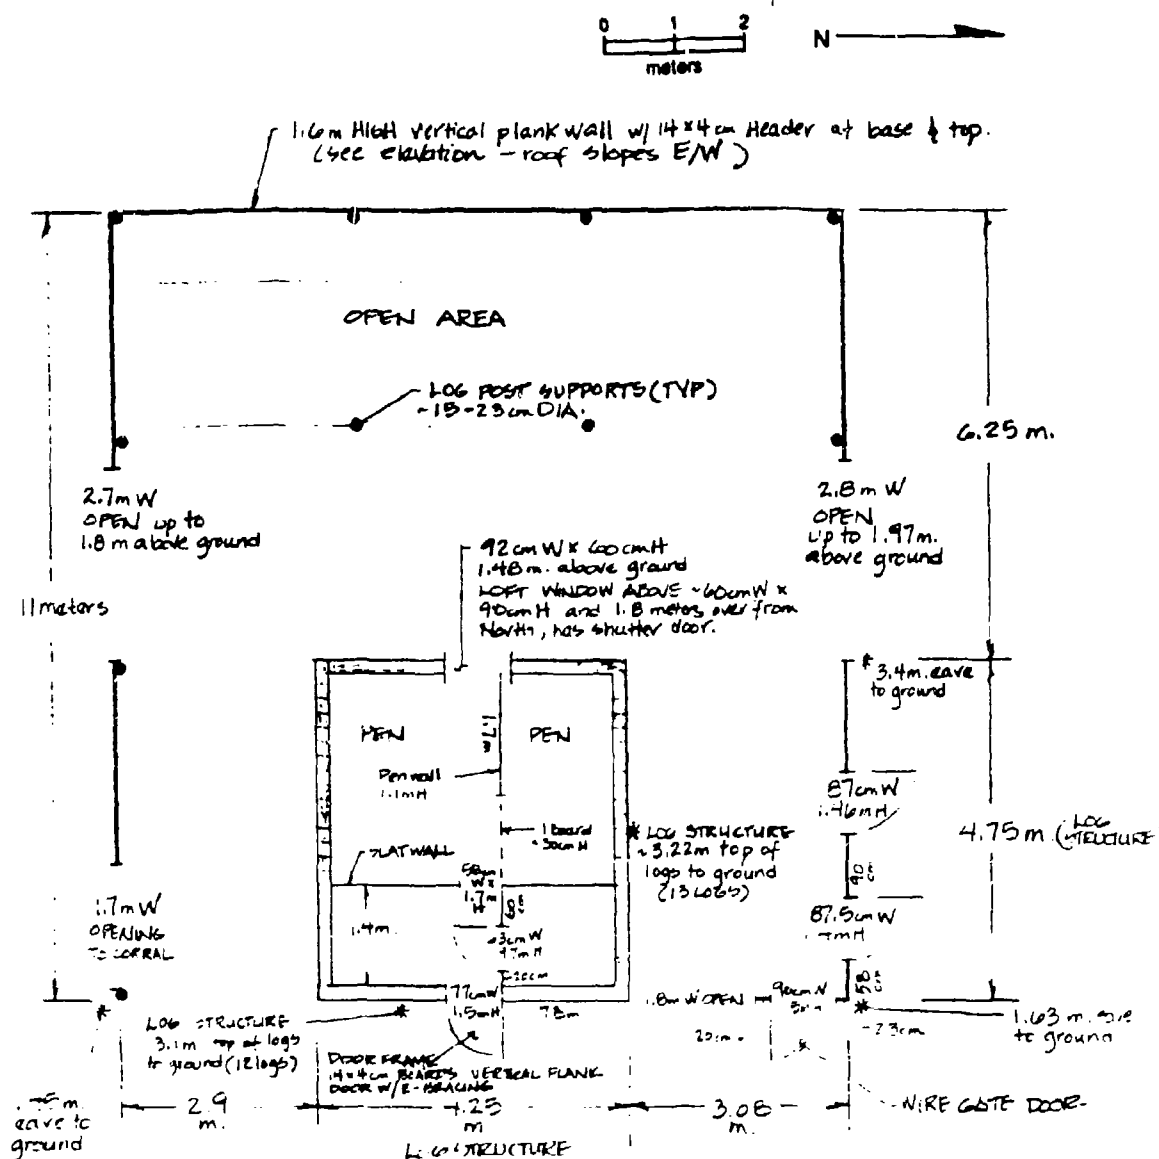 0 1 2
meters
N
1.6m HIGH vertical plank wall w/ 14x4cm Header at base & top.
(see elevation - roof slopes E/W)
OPEN AREA
LOG POST SUPPORTS (TYP)
~15-23cm DIA.
6.25 m.
2.7m W
OPEN up to
1.8 m above ground
2.8m W
OPEN
up to 1.97m.
above ground
92cm W x 600cm H
1.48m. above ground
LOFT WINDOW ABOVE ~60cm W x
90cm H and 1.8 meters over from
North, has shutter door.
11 meters
* 3.4m. eave
to ground
PEN
PEN
1.7m
Pen wall
1.1m H
87cm W
1.46m H
1 board
~30cm H
* LOG STRUCTURE
~3.22m top of
logs to ground
(13 LOGS)
4.75m. (LOG
STRUCTURE
SLAT WALL
58cm
W x
1.7m
H
90
cm
1.7m W
OPENING
TO CORRAL
1.4m
87.5cm W
97m H
20cm
58
cm
77cm W
1.5m H
78m
1.8m W OPEN
90cm W
*
*
*
LOG STRUCTURE
3.1m top of logs
to ground (12 logs)
23cm
1.63 m.
to ground
DOOR FRAME
14x4cm BOARDS VERTICAL PLANK
DOOR W/Z-BRACING
eave to
ground
2.9
m.
4.25
m
3.08
m.
WIRE GATE DOOR
LOG STRUCTURE